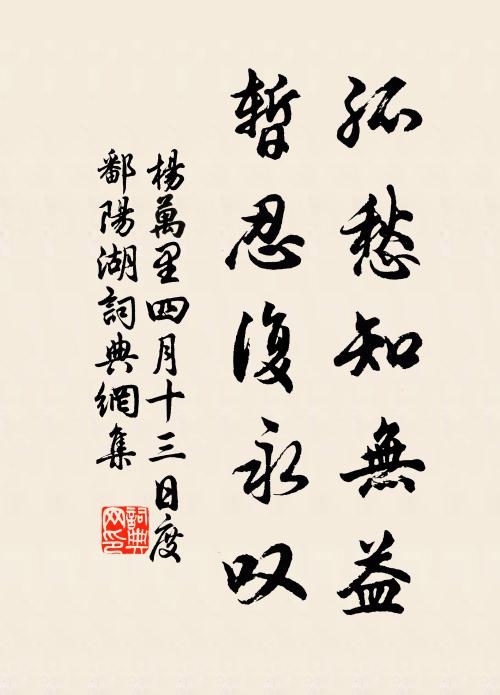 孤愁知無益
暫忍復永叹
楊萬里四月十三日度
鄱陽湖詞典網集
詞典
网印